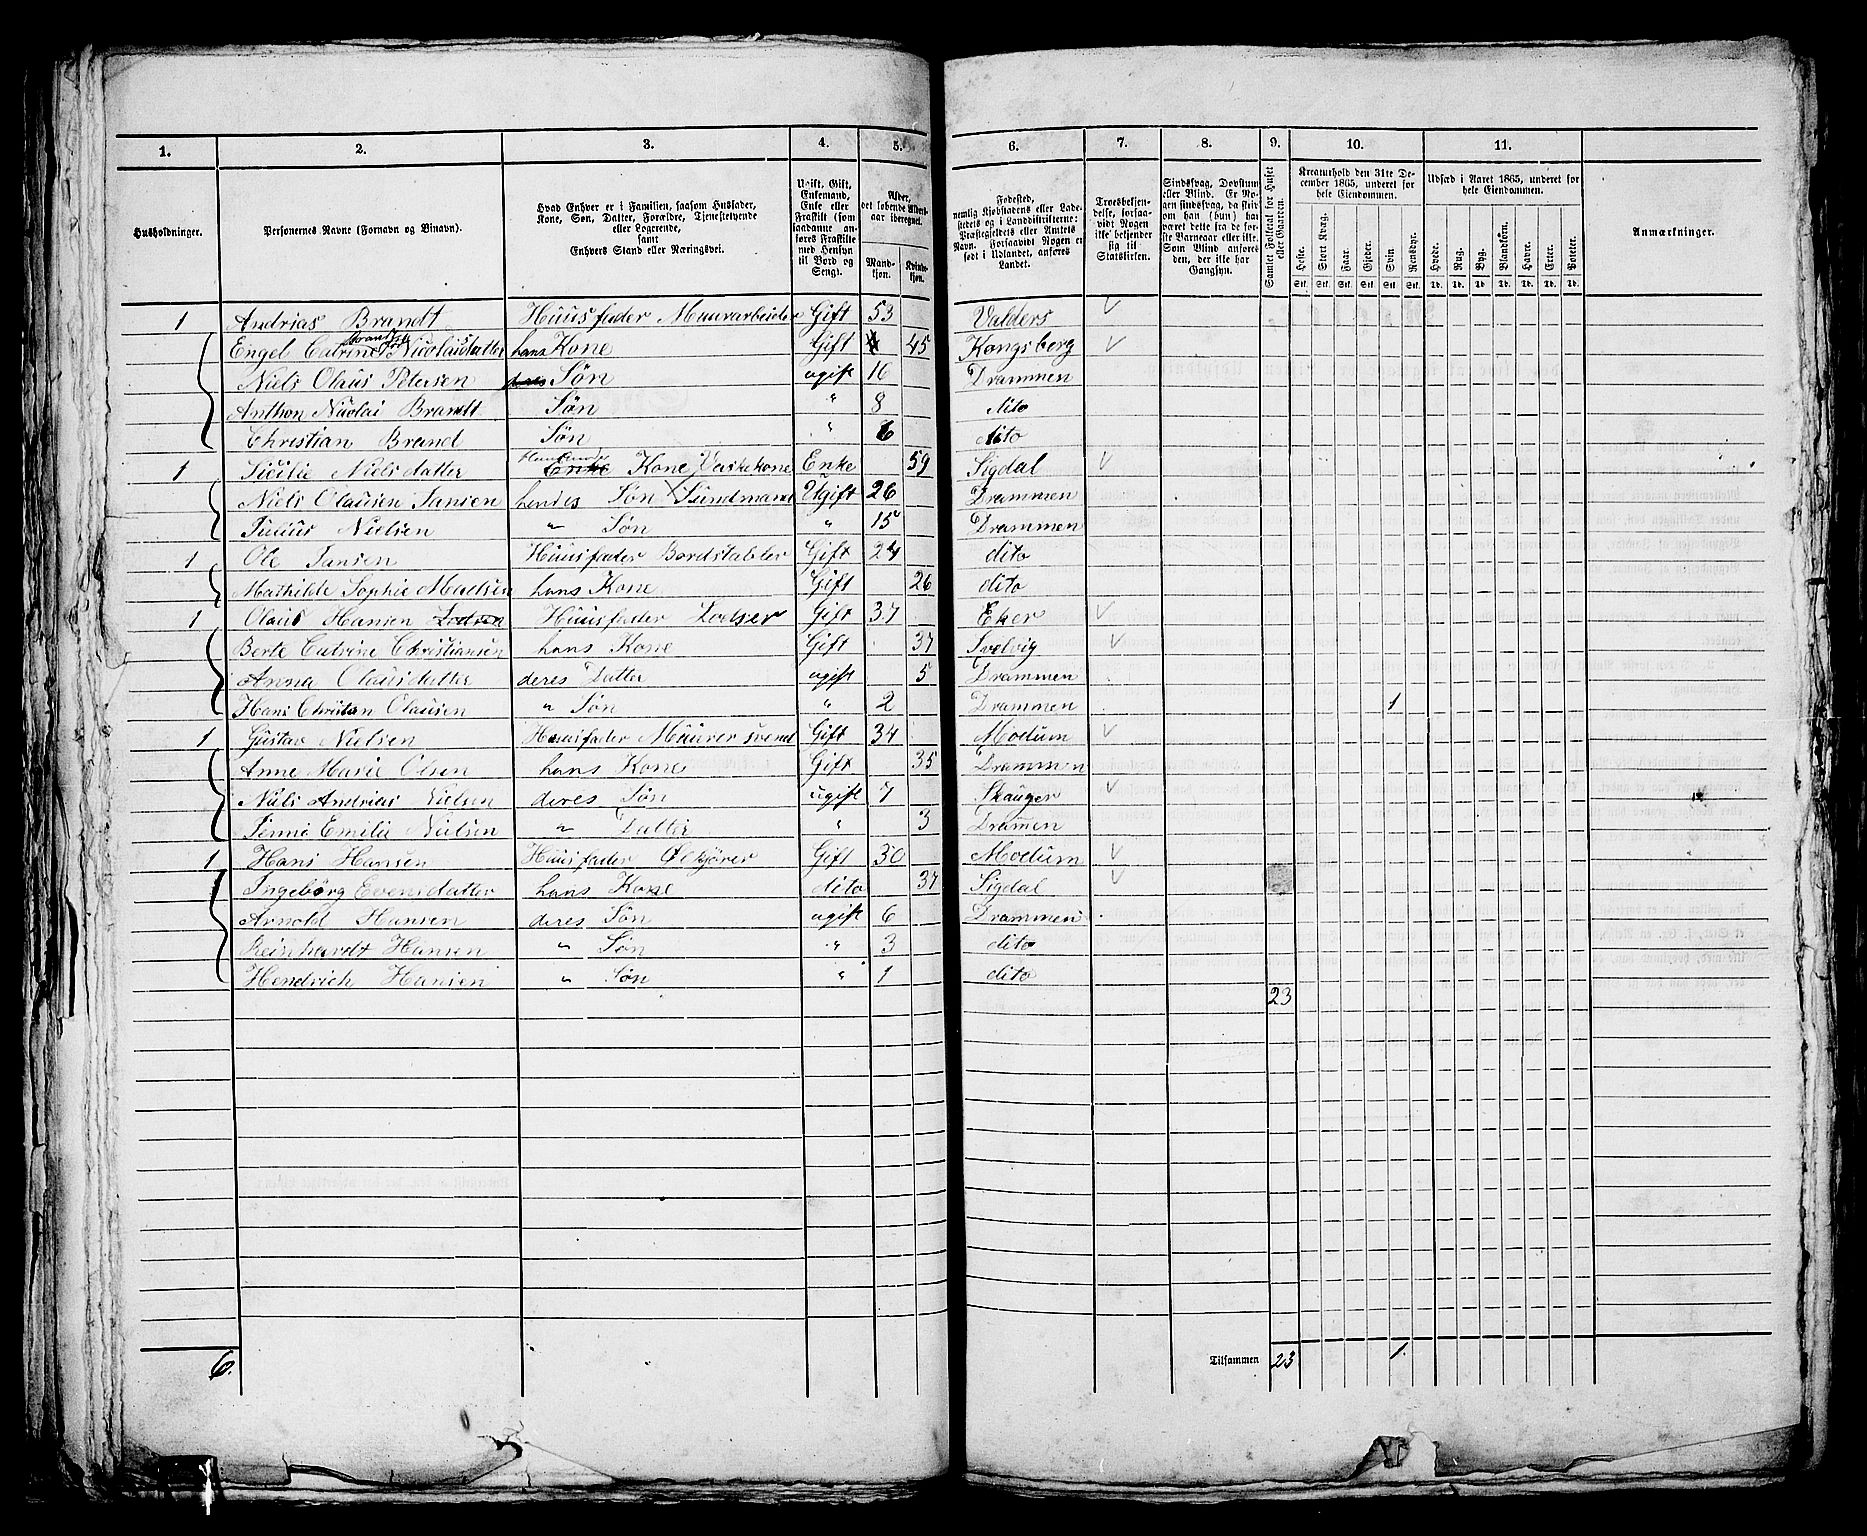 1. 2. 3. 4. 5. 6. 7. 8. 9. 10. 11.
Husholdninger.
Personernes Navne (Fornavn og Binavn).
Hvad Enhver er i Familien, saasom Husfader, Kone, Søn, Datter, Forældre, Tjenestetyende eller Logerende, samt Enhvers Stand eller Næringsvei.
Ugift, Gift, Enkemand, Enke eller Fraskilt (som saadanne anføres Fraskilte med Hensyn til Bord og Seng).
Alder, det løbende Aldersaar iberegnet.
Mandkjøn. Kvindekjøn.
Fødested, nemlig Kjøbstadens eller Ladestedets og i Landdistrikterne: Præstegjeldets eller Amtets Navn. Forsaavidt Nogen er født i Udlandet, anføres Landet.
Troesbekjendelse, forsaavidt Nogen ikke bekjender sig til Statskirken.
Sindssvag, Døvstum eller Blind. Er Nogen sindssvag, da skrives om han (hun) har været dette fra de første Barneaar eller ikke. Som Blind anføres den, der ikke har Gangsyn.
Samlet Folketal for Huset eller Gaarden.
Kreaturhold den 31te December 1865, underet for hele Eiendommen.
Heste. Stort Kvæg. Faar. Gjeder. Svin. Rensdyr.
Udsæd i Aaret 1865, underet for hele Eiendommen.
Hvede. Rug. Byg. Blandkorn. Havre. Erter. Poteter.
Stk. Stk. Stk. Stk. Stk. Stk. Td. Td. Td. Td. Td. Td. Td.
Anmærkninger.
1 Andrias Brandt Huusfader Muurarbeider Gift 53 Valders
Engel Catrine Nicolausdatter hans Kone Gift 45 Kongsberg
Niels Olaus Petersen deres Søn ugift 16 Drammen
Anthon Nicolai Brandt Søn " 8 dito
Christian Brand Søn " 6 dito
1 Sicilie Nielsdatter Enke Kone Vaskekone Enke 59 Sigdal
Niels Olausen Jansen hendes Søn Sundmand Ugift 26 Drammen
Julius Nielsen " Søn " 15 Drammen
1 Ole Jansen Huusfader Bordstabler Gift 24 dito
Mathilde Sophie Madsen hans Kone Gift 26 dito
1 Olaus Hansen Lodsen Huusfader Lodser Gift 37 Eker
Berte Catrine Christiansen hans Kone Gift 37 Svelvig
Anna Olausdatter deres Datter ugift 5 Drammen
Hans Christian Olausen " Søn " 2 Drammen 1
1 Gustav Nielsen Huusfader Muurersvend Gift 34 Modum
Anne Marie Olsen hans Kone Gift 35 Drammen
Niels Andrias Nielsen deres Søn ugift 7 Skauger
Jenni Emilie Nielsen " Datter " 3 Dramen
1 Hans Hansen Huusfader Ølkjører Gift 30 Modum
Ingebørg Evensdatter hans Kone dito 37 Sigdal
Arnold Hansen deres Søn ugift 6 Drammen
Reinhardt Hansen " Søn " 3 dito
Hendrich Hansen " Søn " 1 dito
23
6. Tilsammen 23 1.